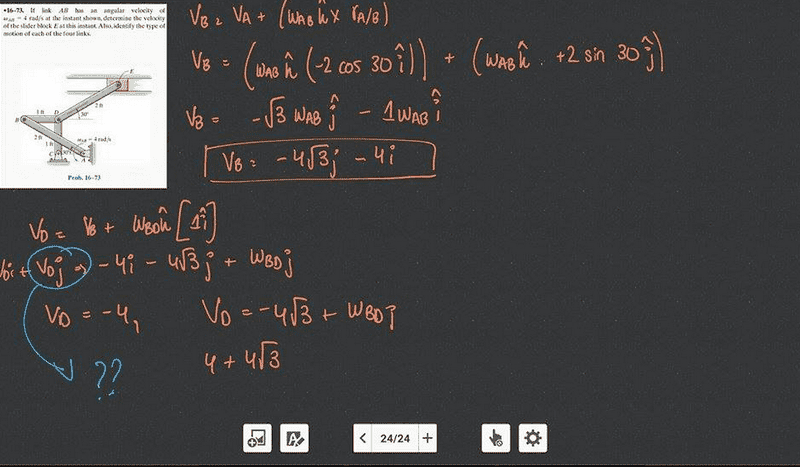 •16–73. If link AB has an angular velocity of
ωAB = 4 rad/s at the instant shown, determine the velocity
of the slider block E at this instant. Also, identify the type of
motion of each of the four links.
E
2 ft
1 ft
D
30°
B
ωAB = 4 rad/s
2 ft
1 ft
C
30°
A
Prob. 16–73
VB = VA + (ωAB k̂ × rA/B)
VB = (ωAB k̂ (-2 cos 30 î)) + (ωAB k̂ . +2 sin 30 ĵ)
VB = -√3 ωAB ĵ - 1ωAB î
VB = -4√3j - 4i
VD = VB + ωBD k̂ [1î]
VDi + VDj => -4i - 4√3j + ωBDj
VD = -4, VD = -4√3 + ωBDj
4 + 4√3
??
24/24